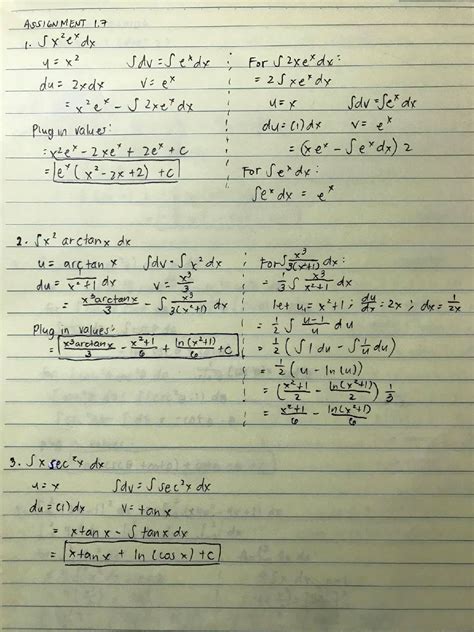 ASSIGNMENT 1.7
1. ∫ x²eˣ dx
u = x² ∫dv = ∫eˣ dx
du = 2x dx v = eˣ
= x²eˣ - ∫ 2xeˣ dx
Plug in values:
= x²eˣ - 2xeˣ + 2eˣ + C
= eˣ (x² - 2x + 2) + C
For ∫ 2xeˣ dx:
= 2 ∫ xeˣ dx
u = x ∫dv = ∫eˣ dx
du = (1) dx v = eˣ
= (xeˣ - ∫eˣ dx) 2
For ∫eˣ dx:
∫eˣ dx = eˣ
2. ∫x² arctanx dx
u = arctan x ∫dv = ∫ x² dx
du = 1/(x²+1) dx v = x³/3
= x³arctanx/3 - ∫ x³/(3(x²+1)) dx
Plug in values:
x³arctanx/3 - (x²+1)/6 + ln(x²+1)/6 + C
For ∫ x³/(3(x²+1)) dx:
= 1/3 ∫ x³/(x²+1) dx
let u = x²+1 ; du/dx = 2x ; dx = 1/2x
= 1/2 ∫ (u-1)/u du
= 1/2 (∫ 1 du - ∫ 1/u du)
= 1/2 (u - ln(u))
= ((x²+1)/2 - ln(x²+1)/2) 1/3
= (x²+1)/6 - ln(x²+1)/6
3. ∫ x sec²x dx
u = x ∫dv = ∫ sec²x dx
du = (1) dx v = tan x
= x tan x - ∫ tan x dx
= x tan x + ln (cos x) + C